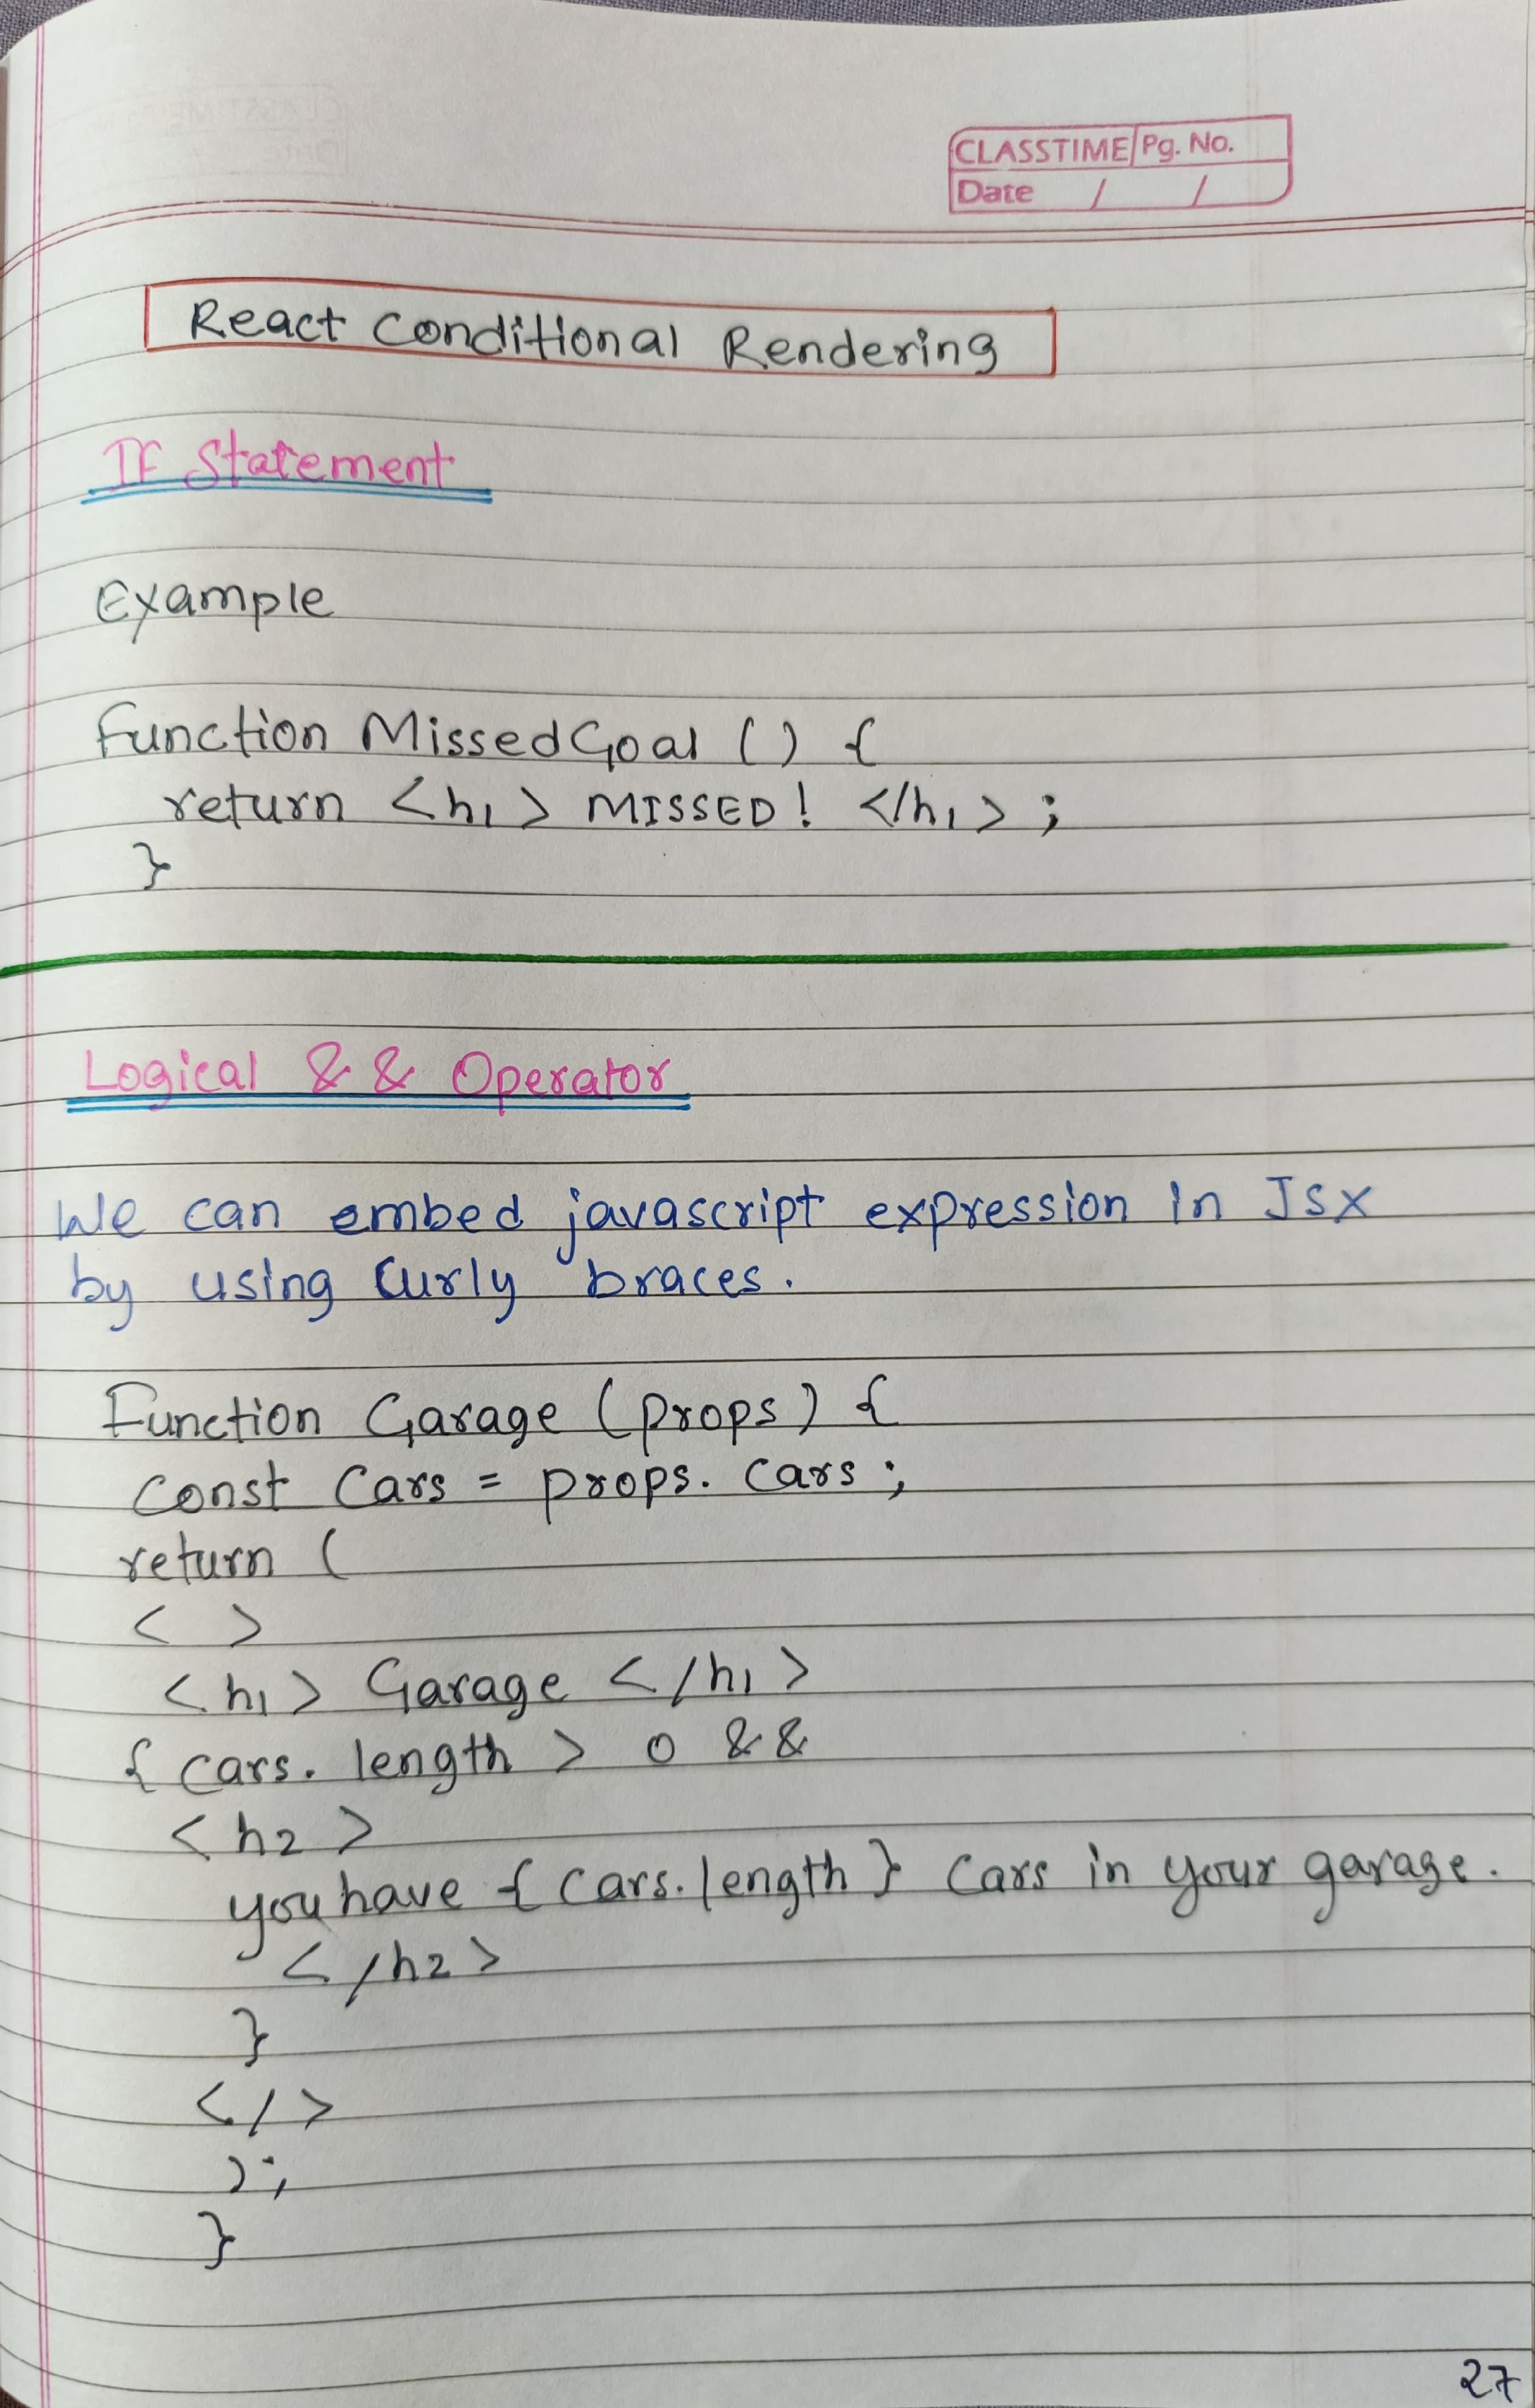 CLASSTIME Pg. No.
Date / /
React Conditional Rendering
If Statement
Example
function MissedGoal () {
return <h1> MISSED! </h1> ;
}
Logical && Operator
We can embed javascript expression in JSX
by using Curly braces.
Function Garage (props) {
Const Cars = props. Cars ;
return (
< >
<h1> Garage < /h1 >
{ cars. length > 0 &&
<h2 >
you have { Cars. length } Cars in your garage.
< /h2 >
}
< / >
);
}
27